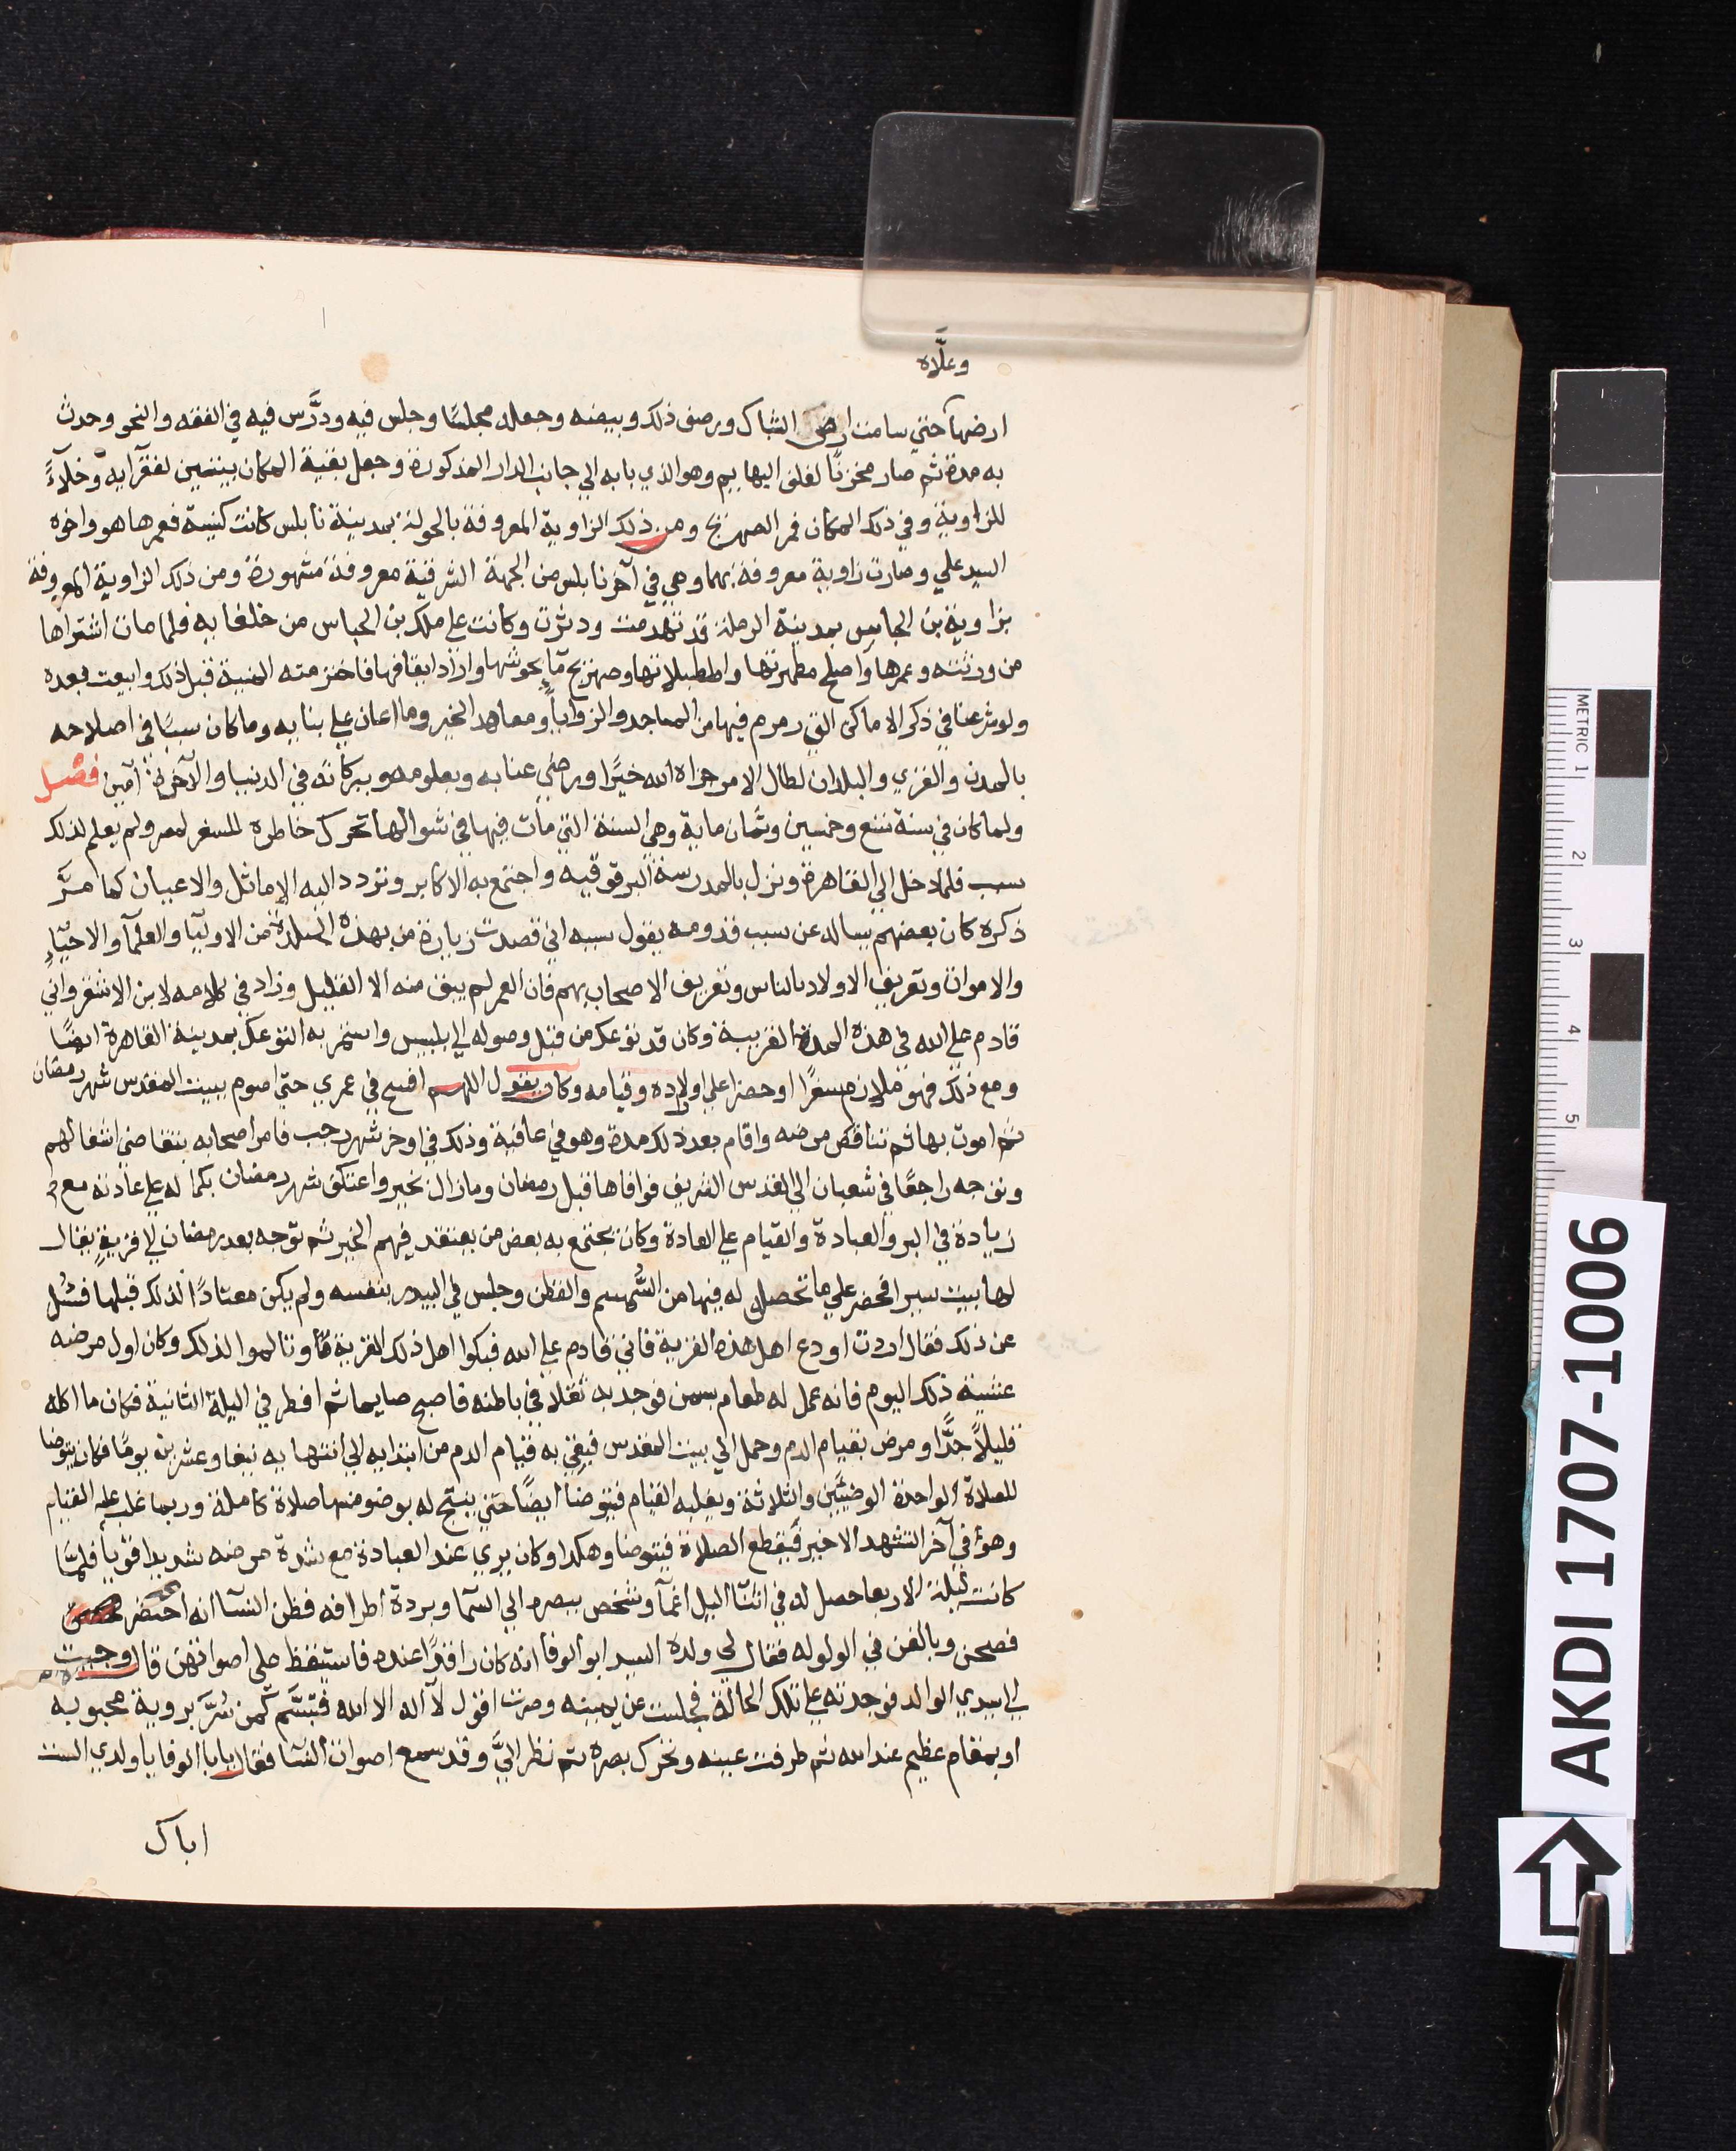 وعلّاه
ارضها حتي سامت ارض الشباك ورصف ذلك وبيضه وجعله مجلسًا وجلس فيه ودرَّس فيه في الفقه والنحو وحدث
به مدة ثم صار مخزنًا لغلق اليها يم وهو الذي بابه الي جانب الدار المذكورة وجعل بقية المكان بيتين لفقرآيه وخلآءً
للزاوية وفي ذلك المكان فم الصهريج ومن ذلك الزاوية المعروفة بالحولة بمدينة نابلس كانت كنيسة فعمرها هو واخوه
السيد علي وصارت زاوية معروفة بهما وهي في آخر نابلس من الجهة الشرقية معروفة مشهورة ومن ذلك الزاوية المعروفة
بزاوية بن الجاس بمدينة الرملة قد تهدمت ودثرت وكانت علي ملك بن الحباس من خلفا به فلما مات اشتراها
من ورثته وعمرها واصلح مطهرتها واططبلاتها وصهريج مآ بحوشها واراد ايقافها فاخترمته المنية قبل ذلك وابيعت بعده
ولو شرعنا في ذكر الاماكن التي رمرم فيها من المساجد والزوايا ومعاهد الخير وما اعان علي بنايه وما كان سببًا في اصلاحه
بالمدن والقري والبلدان لطال الامر جزاه الله خيرًا ورضي عنا به وبعلومه وبركاته في الدنيا والآخرة آمين فصل
ولما كان في سنة تسع وخمسين وثمان ماية وهي السنة التي مات فيها في شوالها تحرك خاطره للسفر لمصر ولم يعلم لذلك
سبب فلما دخل الي القاهرة ونزل بالمدرسة البرقوقيه واجتمع به الاكابر وتردد اليه الاماثل والاعيان كما مرَّ
ذكره كان بعضهم يساله عن سبب قدومه يقول سببه اني قصدت زيارة من بهذه البلدة من الاوليآ والعلمآ والاحيآءِ
والاموات وتعريف الاولاد بالناس وتعريف الاصحاب بهم فان العمر لم يبق منه الا القليل وزاد في كلامه لابن الاشقر واني
قادم علي الله في هذه المدة القريبة وكان قد توعك من قبل وصوله الي بلبيس واستمر به التوعك بمدينة القاهرة ايضًا
ومع ذلك فهو ملازم سفرًا او حضرا علي اولاده وقيامه وكان يقول اللهم افسح في عمري حتي اصوم ببيت المقدس شهر رمضان
ثم اموت بها ثم تناقص مرضه واقام بعد ذلك مدة وهو في عافية وذلك في اوخر شهر رجب فامر اصحابه بتقاضي اشغالهم
وتوجه راجعًا في شعبان الي القدس الشريف فوافاها قبل رمضان وما زال بخير واعتكف شهر رمضان بكماله علي عادته مع
زيادة في البر والعبادة والقيام علي العادة وكان يجتمع به بعض من يعتقد فيهم الخير ثم توجه بعد رمضان الي قريةٍ يقال
لها بيت سبرا فحضر علي ما تحصل له فيها من السُّمسم والقطن وجلس في البيدر بنفسه ولم يكن معتادًا لذلك قبلها فسُل
عن ذلك فقال اردت اودع اهل هذه القرية فاني قادم علي الله فبكوا اهل ذلك القرية وتالموا لذلك وكان اول مرضه
عشية ذلك اليوم فانه عمل له طعام بسمن فوجد به ثقلا في باطنه فاصبح صايما ثم افطر في الليلة الثانية فكان ما اكله
قليلًا جدًّا ومرض بقيام الدم وحمل الي بيت المقدس فبقي به قيام الدم من ابتدايه الي انتهايه نيفا وعشرين يومًا فكان يتوضا
للصلاة الواحدة الوضيّن والثلاثة ويغلبه القيام فيتوضا ايضًا حتي ينتج له بوضو منها صلاة كاملة وربما غلب عليه القيام
وهو في آخر التشهد الاخير فيقطع الصلاة فيتوضا وهكدا وكان يري عند العبادة مع شدة مرضه شديدا قويًا فلمّا
كانت ليلة الاربعا حصل له في اثنآ الليل اغمآ وشخص ببصره الي السمآ وبردة اطرافه فظن النسآ انه احتضر
فصحن وبالغن في الولوله فقال لي ولده السيد ابو الوفا انه كان راقدًا عنده فاستيقظ علي اصواتهن قال وجيت
الي سيدي الوالد فوجدته علي تلك الحالة فجلست عن يمينه وصرت اقول لآ اله الا الله فتبسَّم كمن سُرَّ بروية محبوبه
او بمقام عظيم عند الله ثم طرفت عينه وتحرك بصره ثم نظر اليَّ وقد سمع اصوات النسآ فقال يابا الوفا يا ولدي السنت
اباك
METRIC 1 2 3 4 5
AKDI 1707-1006